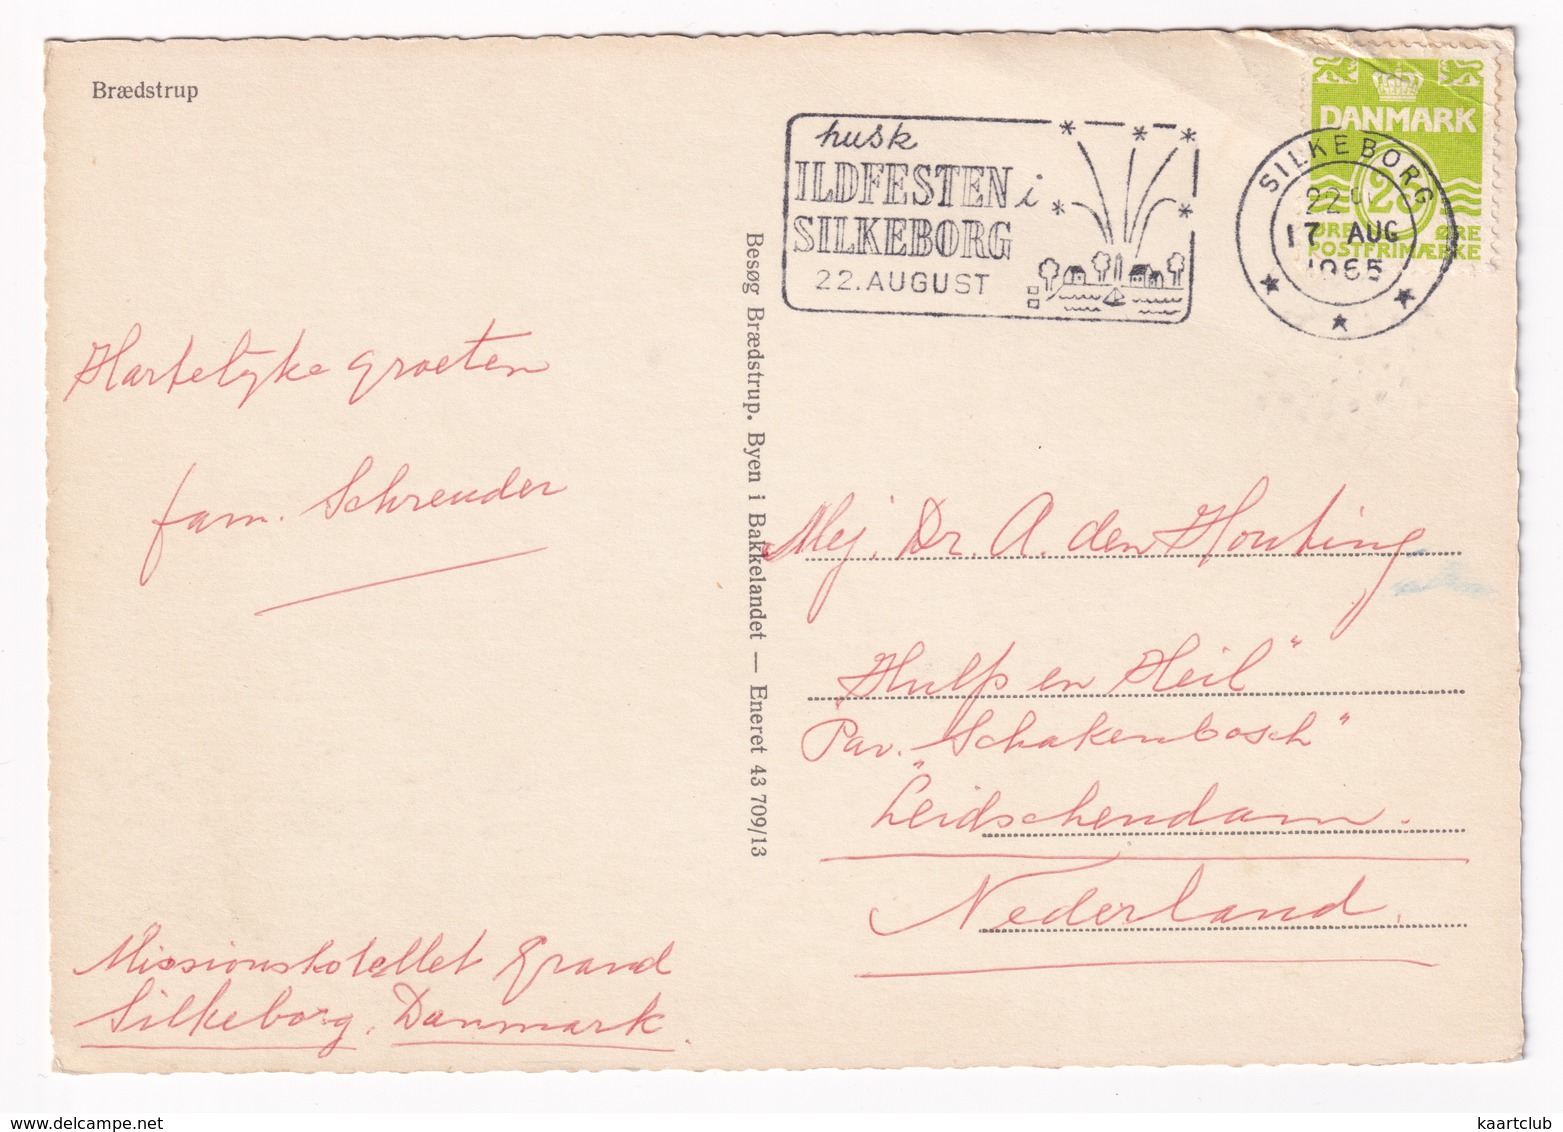 Brædstrup
husk
ILDFESTEN i
SILKEBORG
22. AUGUST
SILKEBORG
17 AUG
1965
DANMARK
ØRE ØRE
POSTFRIMÆRKE
Hartelyke groeten
fam. Schreuder
Missionshotellet Grand
Silkeborg. Danmark.
Besøg Brædstrup. Byen i Bakkelandet — Eneret 43 709/13
Mej. Dr. A. den Houting
„Hulp en Heil"
Pav. „Schakenbosch"
Leidschendam.
Nederland.
kaartclub